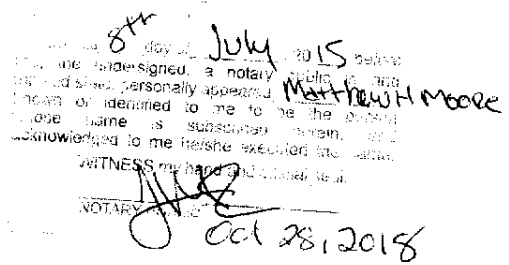 8th day of July 2015 before
me, the undersigned, a notary public in and
said state, personally appeared Matthew H Moore
known or identified to me to be the person
whose name is subscribed herein, and
acknowledged to me he/she executed the same.
WITNESS my hand and official seal.
NOTARY
Oct 28, 2018